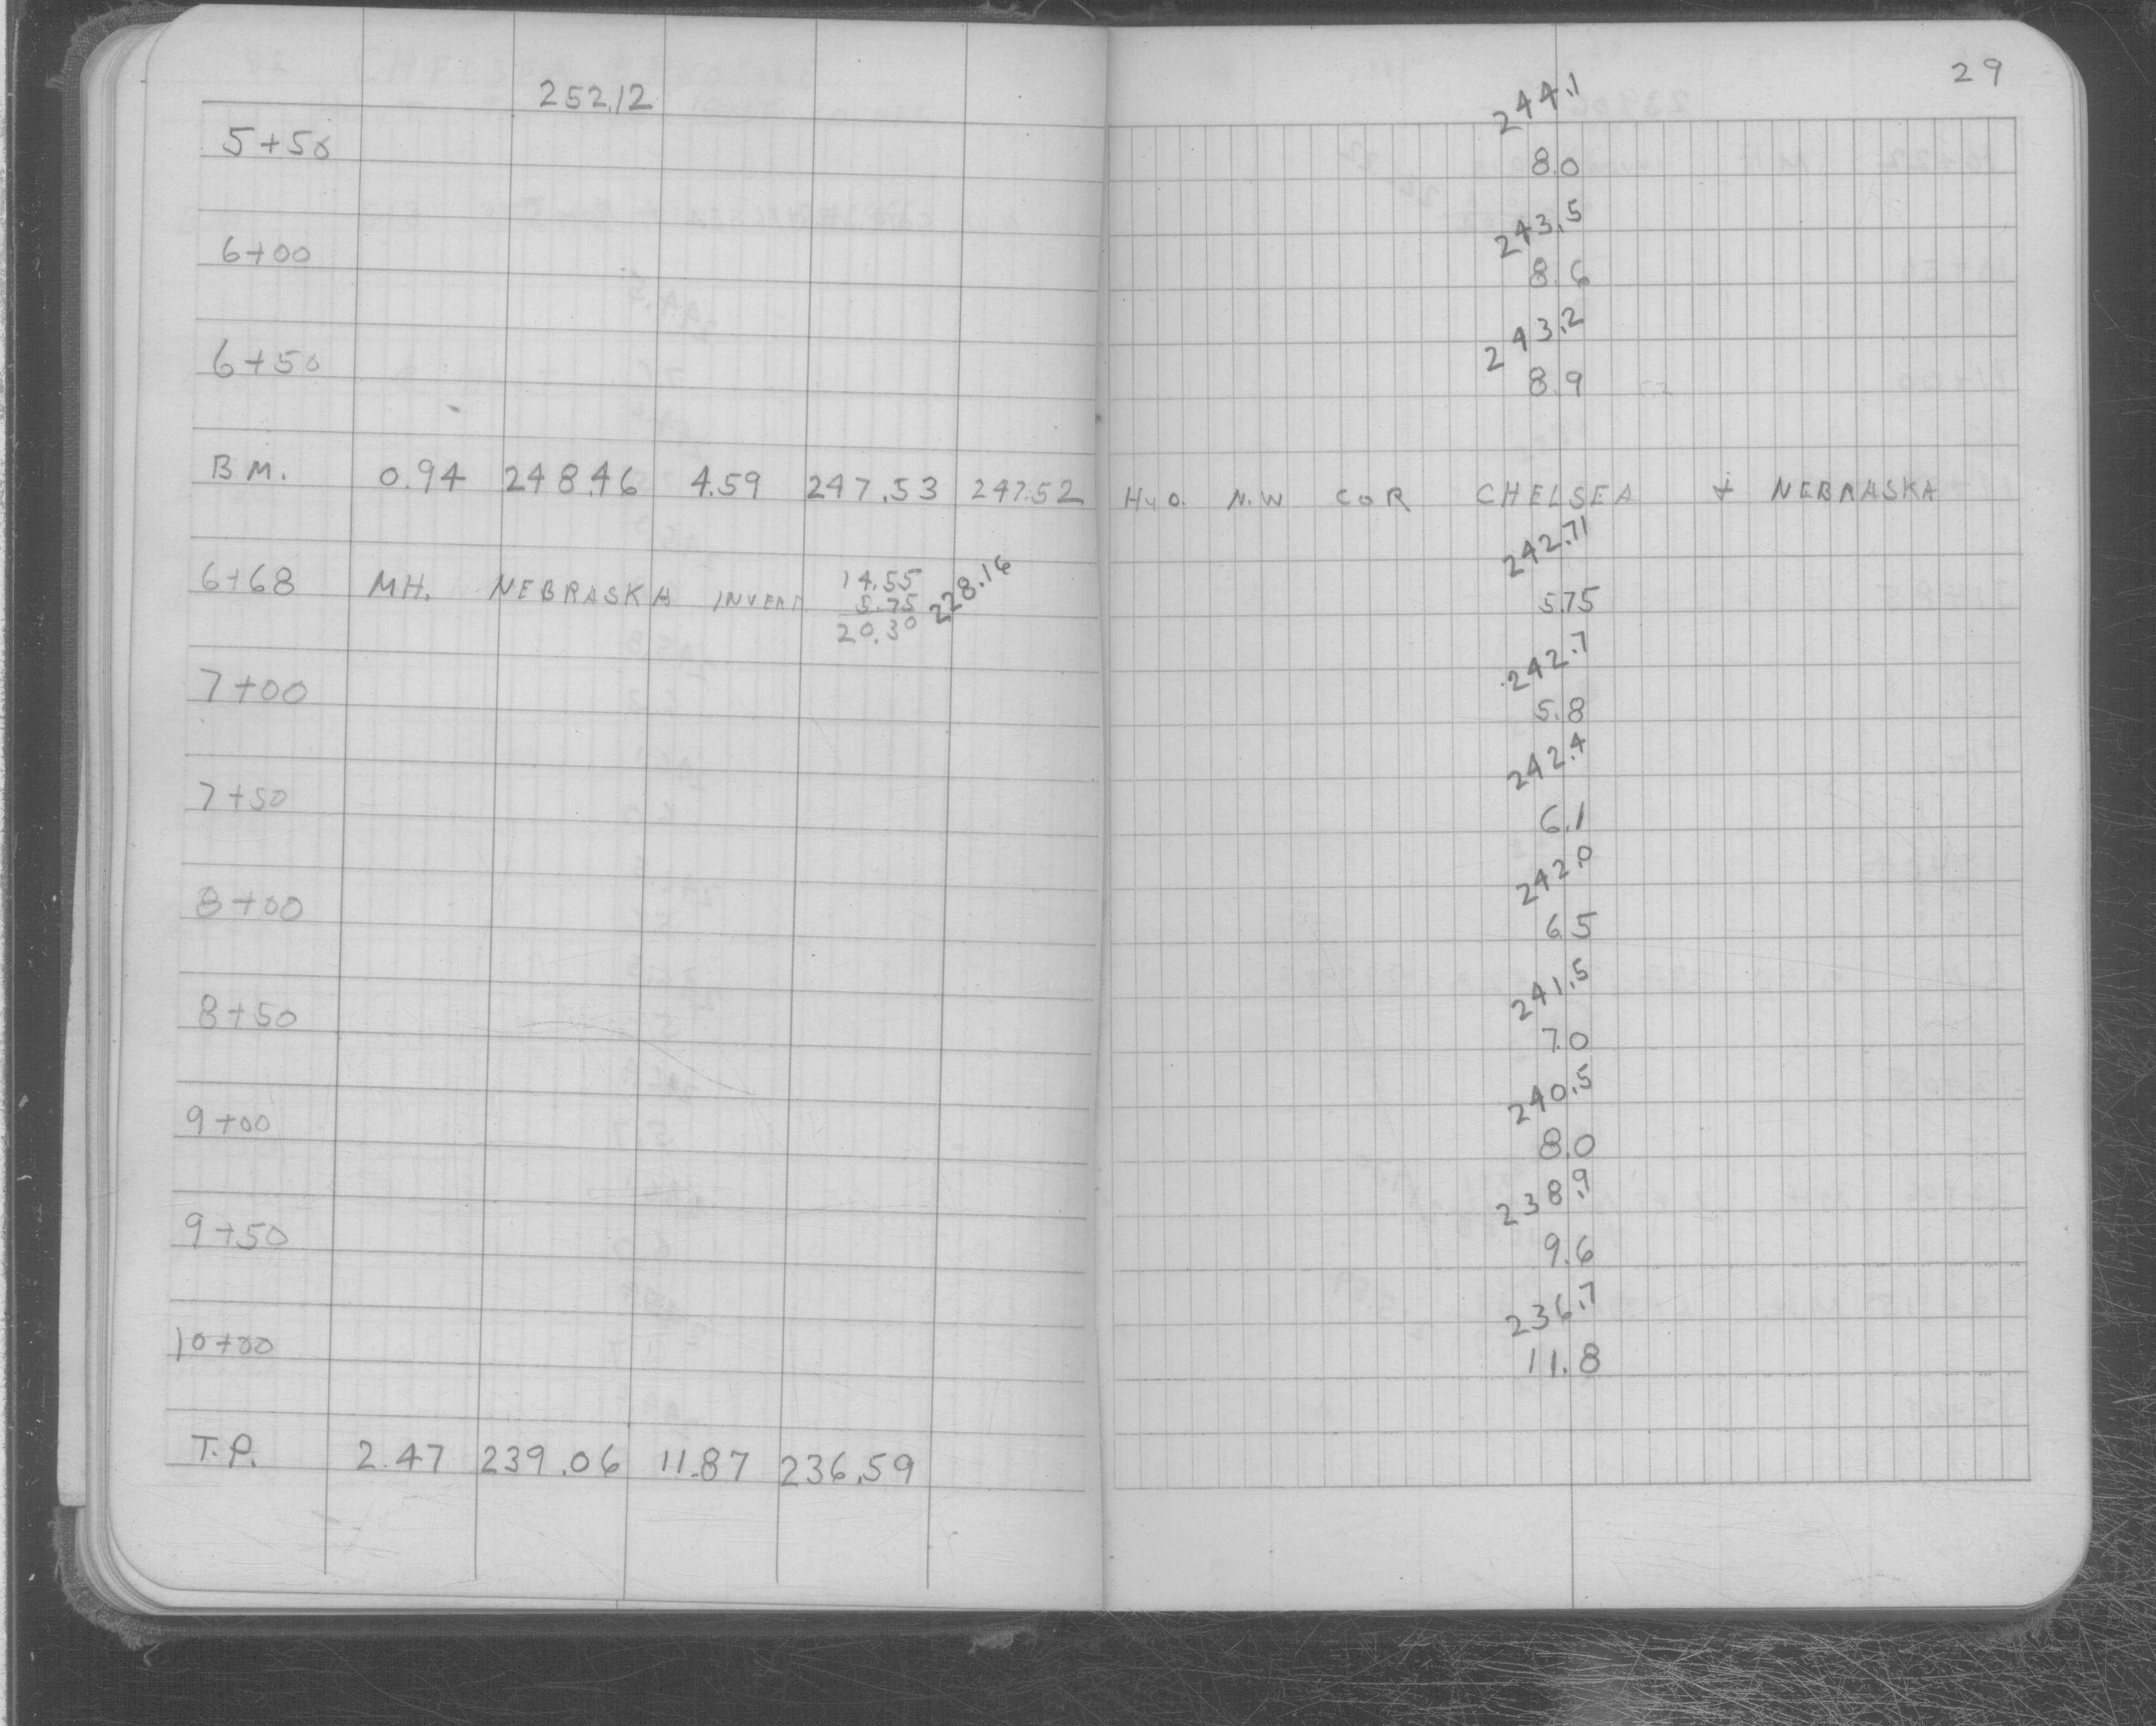 29
252.12 244.1
5+50 8.0
243.5
6+00 8.6
243.2
6+50 8.9
B.M. 0.94 248.46 4.59 247.53 247.52 HYD. N.W COR CHELSEA + NEBRASKA
242.71
6+68 MH. NEBRASKA INVERT 14.55 228.16
5.75 5.75
20.30
242.7
7+00 5.8
242.4
7+50 6.1
242.0
8+00 6.5
241.5
8+50 7.0
240.5
9+00 8.0
238.9
9+50 9.6
236.7
10+00 11.8
T.P. 2.47 239.06 11.87 236.59